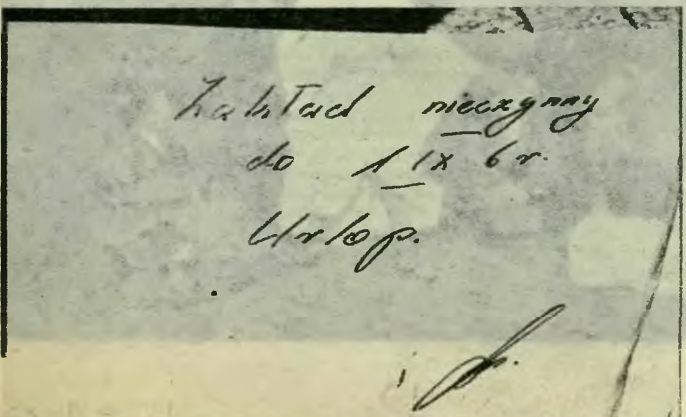 Zakład nieczynny
do 1 IX b r.
Urlop.